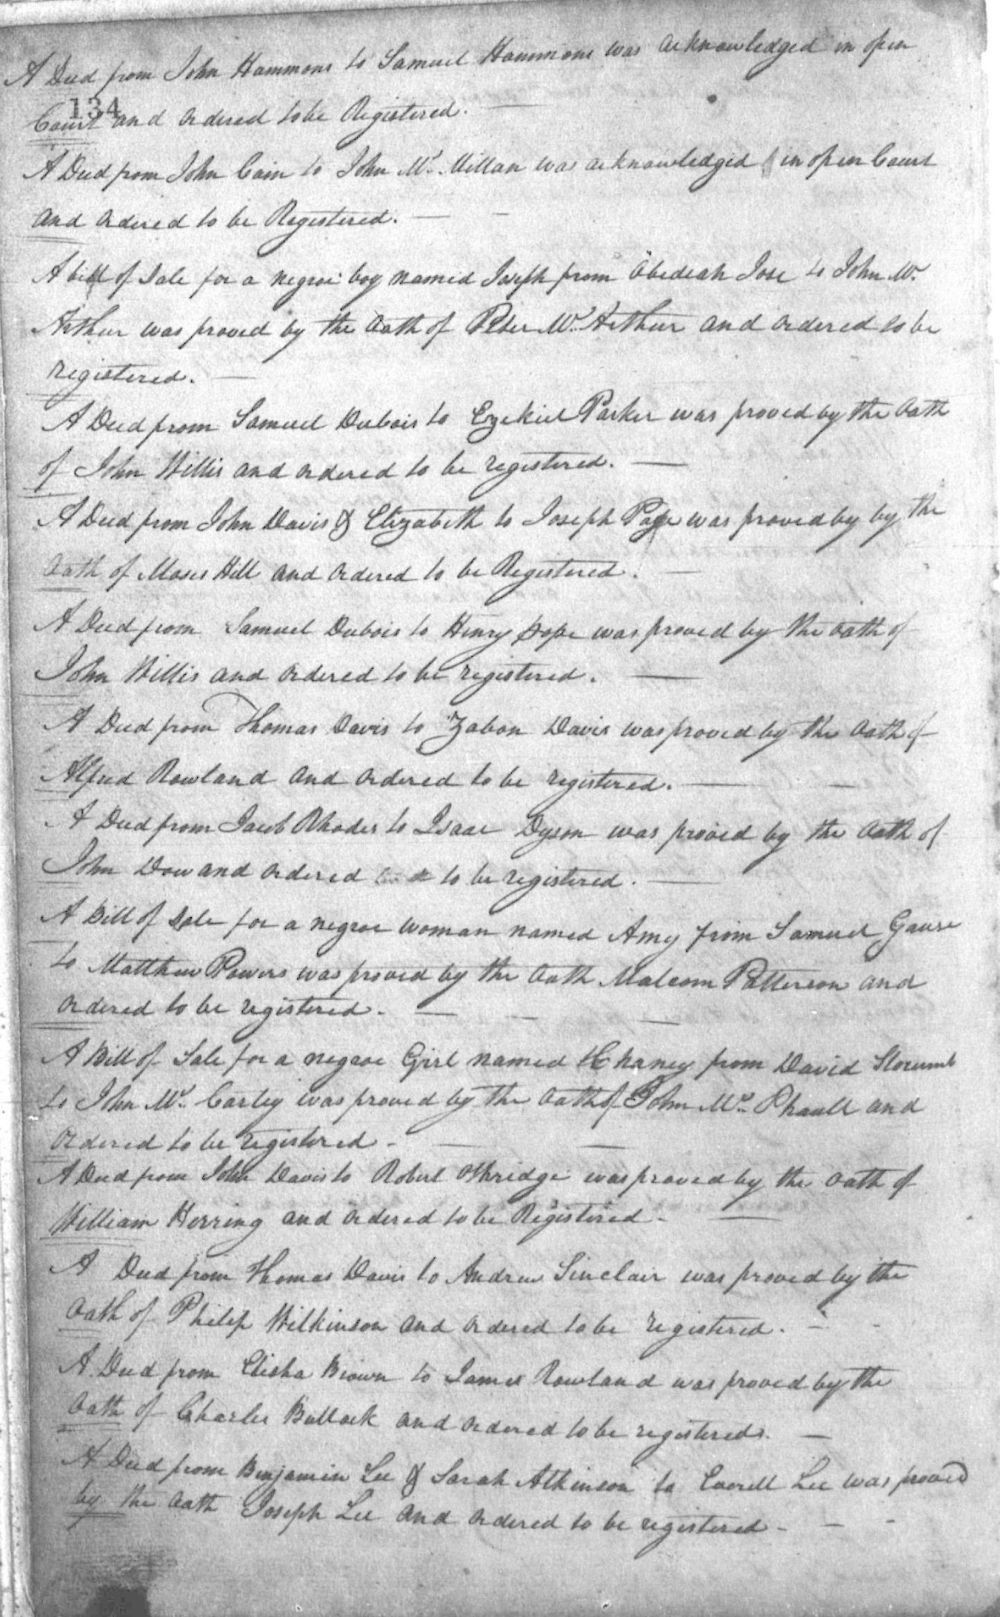 A Deed from John Hammons to Samuel Hammons was acknowledged in open
134
Court and ordered to be Registered.
A Deed from John Cain to John Mc. Millan was acknowledged in open Court
and ordered to be Registered.
A bill of Sale for a negroe boy named Joseph from Obediah Jose to John Mc.
Arthur was proved by the Oath of Peter Mc. Arthur and ordered to be
registered.
A Deed from Samuel Dubois to Ezekiel Parker was proved by the Oath
of John Willis and ordered to be registered.
A Deed from John Davis & Elizabeth to Joseph Page was proved by by the
Oath of Moses Hill and ordered to be Registered.
A Deed from Samuel Dubois to Henry Pope was proved by the Oath of
John Willis and ordered to be registered.
A Deed from Thomas Davis to Zabon Davis was proved by the Oath of
Alfred Rowland and ordered to be registered.
A Deed from Jacob Rhodes to Isaac Dyson was proved by the Oath of
John Dow and ordered to be registered.
A Bill of Sale for a negroe woman named Amy from Samuel Gause
to Matthew Powers was proved by the Oath Malcom Patterson and
ordered to be registered.
A Bill of Sale for a negroe Girl named Chaney from David Slocumb
to John Mc. Carley was proved by the Oath of John Mc. Phaull and
Ordered to be registered
A Deed from John Davis to Robert Ethridge was proved by the Oath of
William Herring and ordered to be Registered.
A Deed from Thomas Davis to Andrew Sinclair was proved by the
Oath of Philip Wilkinson and ordered to be registered.
A Deed from Elisha Brown to James Rowland was proved by the
Oath of Charles Bullock and ordered to be registered.
A Deed from Benjamin Lee & Sarah Atkinson to Everell Lee was proved
by the Oath Joseph Lee and ordered to be registered